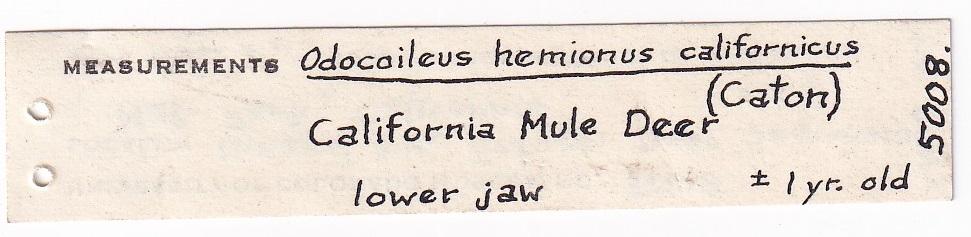 MEASUREMENTS Odocoileus hemionus californicus
(Caton)
California Mule Deer
lower jaw ± 1 yr. old
5008.